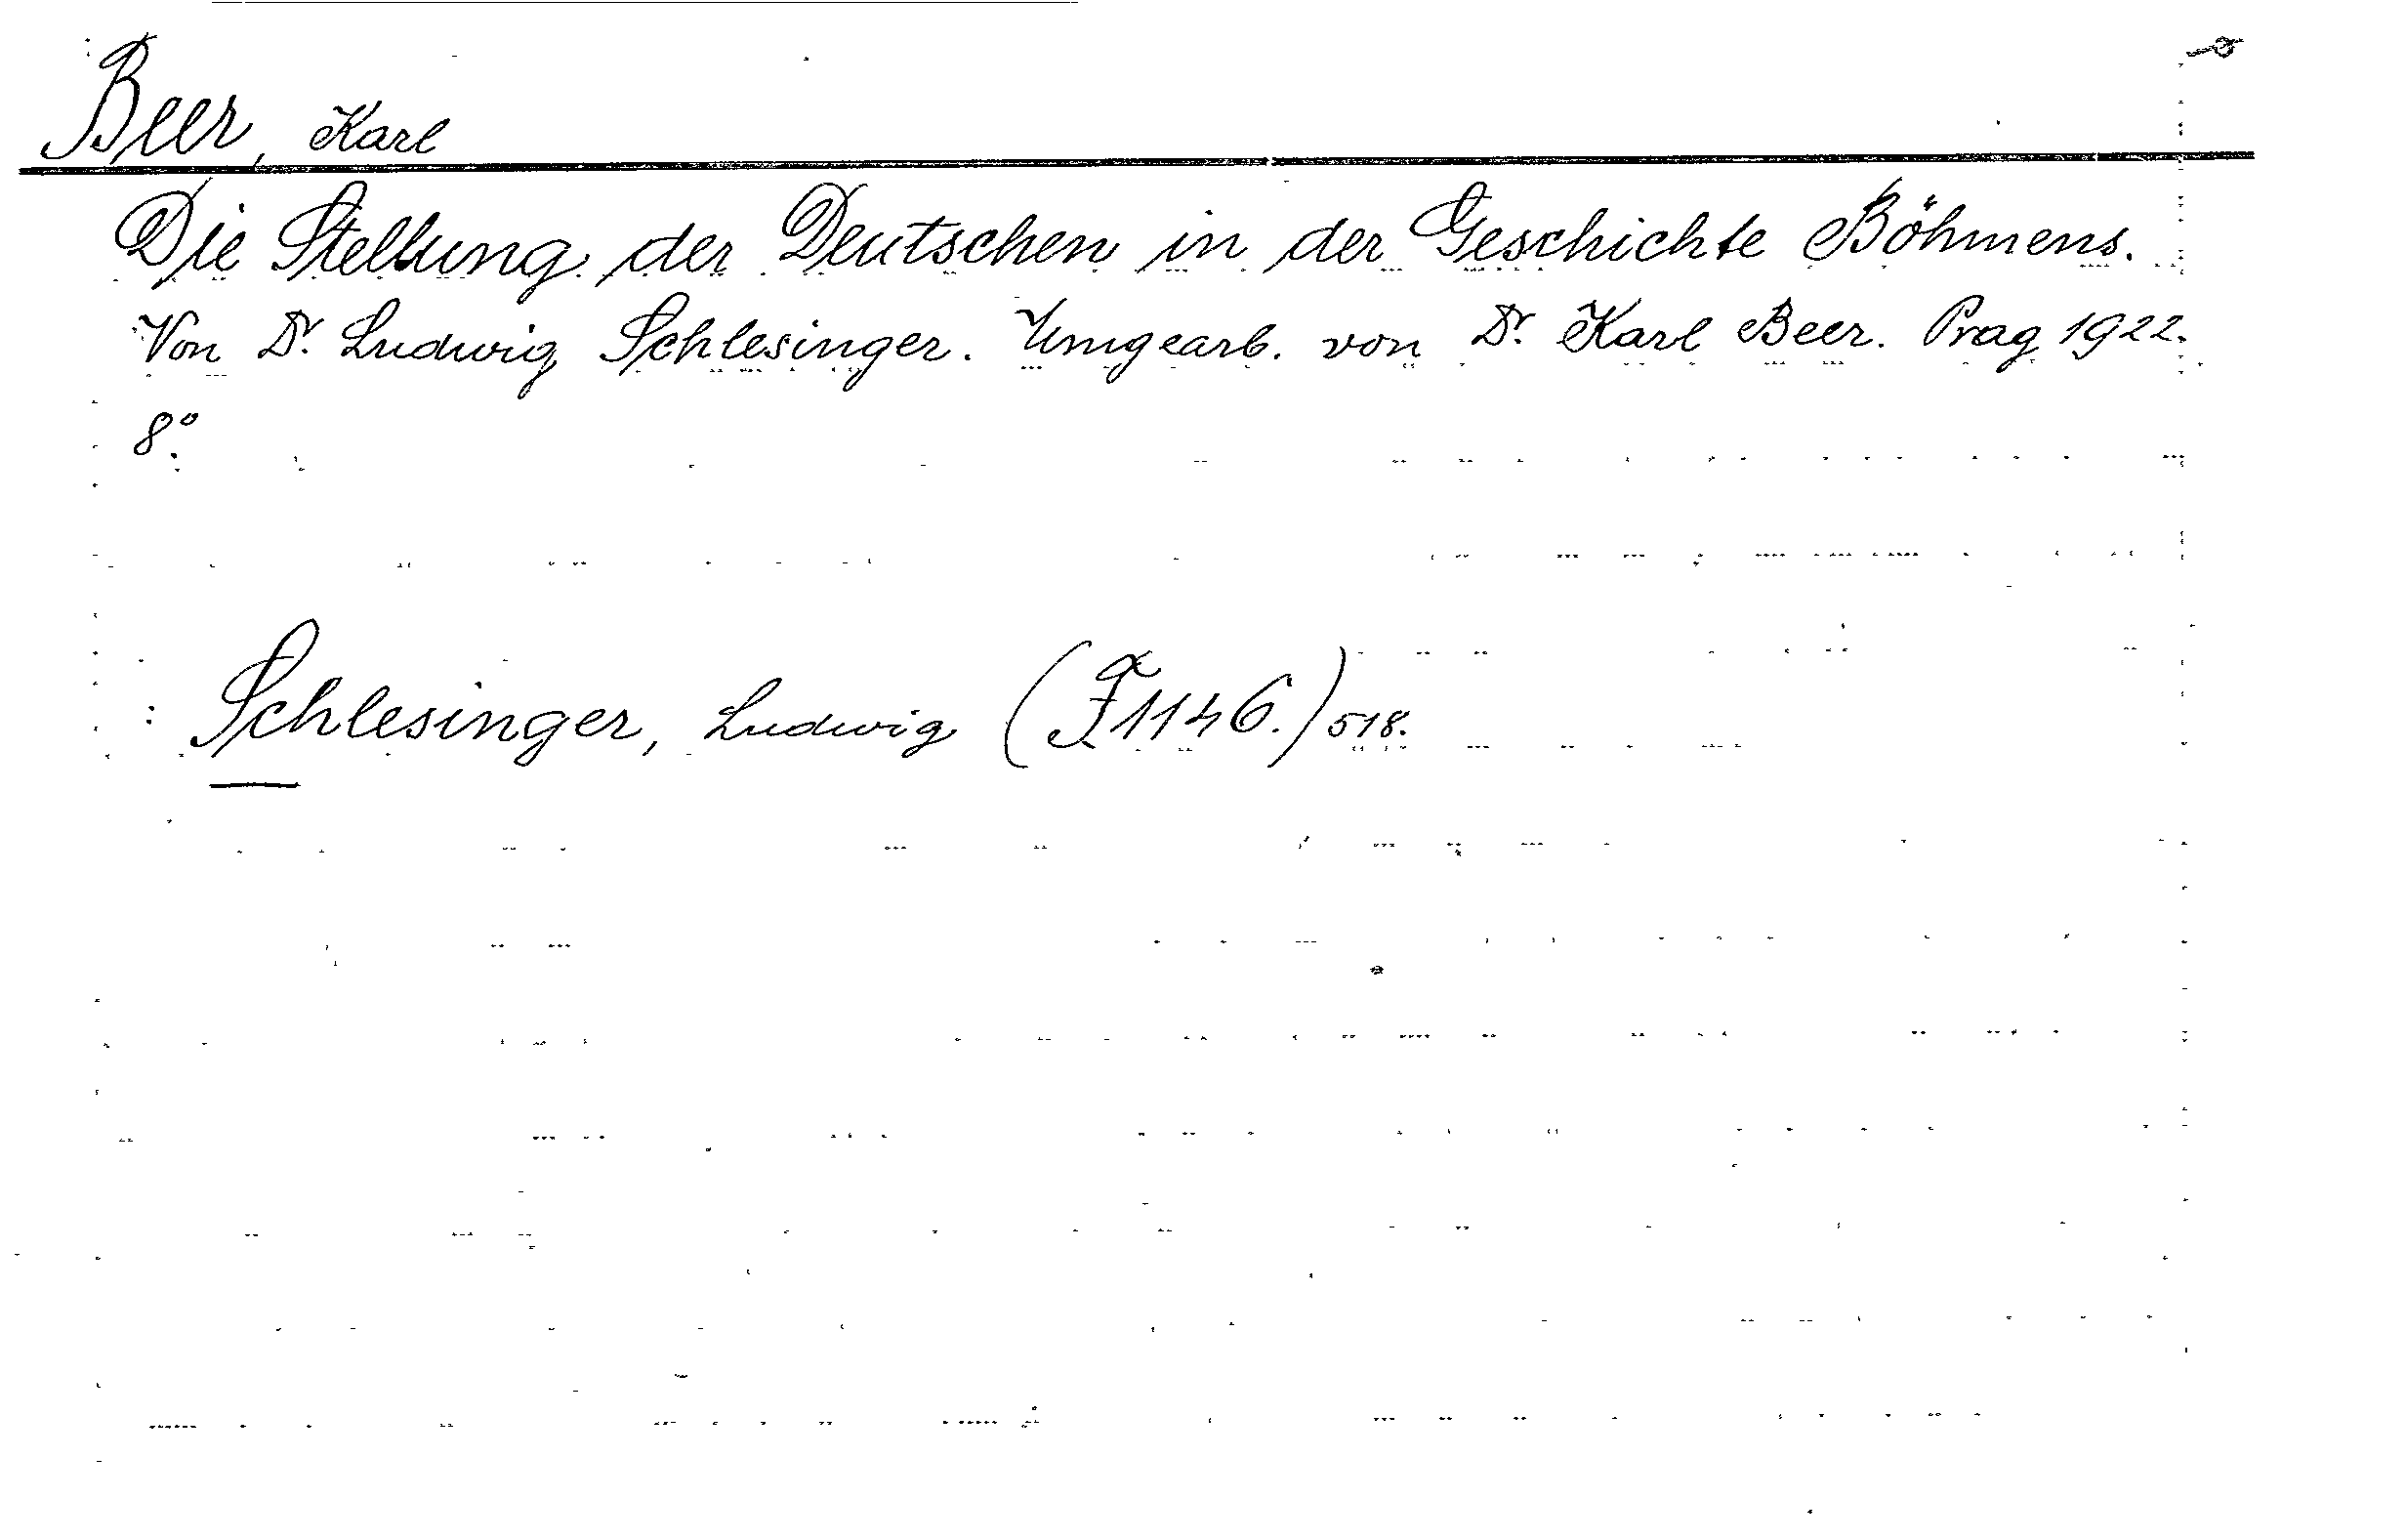 Beer, Karl
Die Stellung der Deutschen in der Geschichte Böhmens.
Von Dr. Ludwig Schlesinger. Umgearb. von Dr. Karl Beer. Prag 1922.
8°.
: Schlesinger, Ludwig (F 1146.) 518.